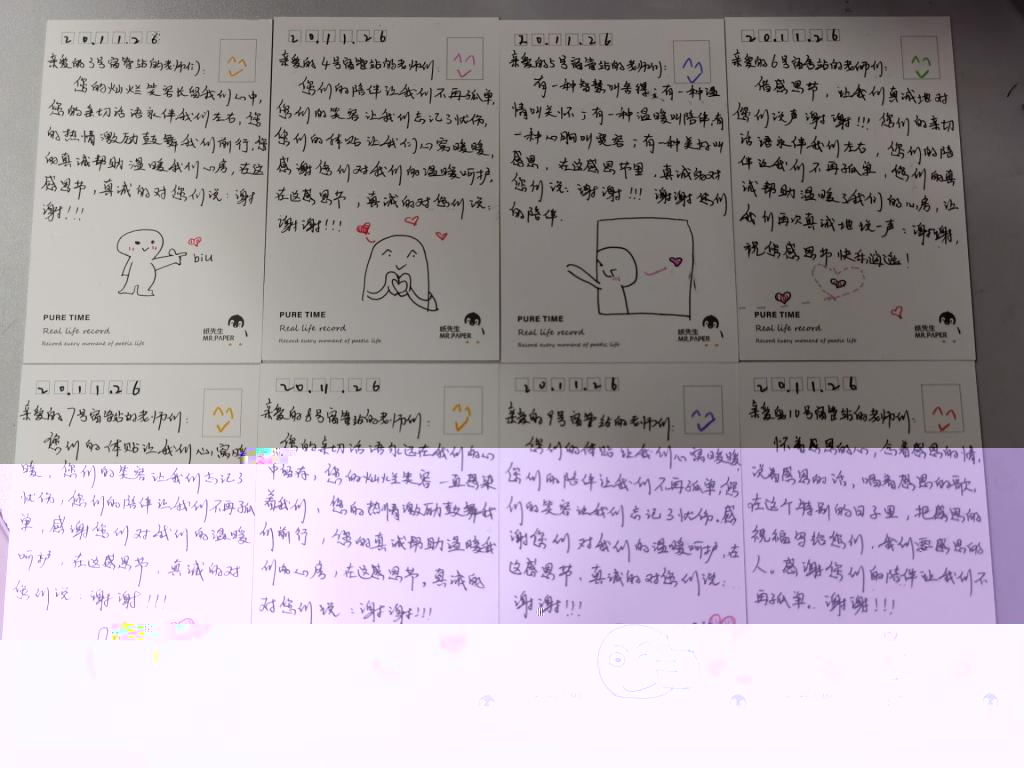 20.11.26
亲爱的3号宿管站的老师们:
您的灿烂笑容长留我们心中,
您的亲切话语永伴我们左右,您
的热情激励鼓舞我们前行,您
的真诚帮助温暖我们心房,在这
感恩节,真诚的对您们说:谢
谢!!!
biu
PURE TIME
Real life record
Record every moment of poetic life
纸先生
MR.PAPER
20.11.26
亲爱的4号宿管站的老师们:
您们的陪伴让我们不再孤单,
您们的笑容让我们忘记了忧伤,
您们的体贴让我们心窝暖暖,
感谢您们对我们的温暖呵护,
在这感恩节,真诚的对您们说:
谢谢!!!
PURE TIME
Real life record
Record every moment of poetic life
纸先生
MR.PAPER
20.11.26
亲爱的5号宿管站的老师们:
有一种智慧叫答疑;有一种温
情叫关怀;有一种温暖叫陪伴,有
一种心胸叫宽容;有一种美好叫
感恩,在这感恩节里,真诚的对
您们说:谢谢!!!谢谢您们
的陪伴.
PURE TIME
Real life record
Record every moment of poetic life
纸先生
MR.PAPER
20.11.26
亲爱的6号宿管站的老师们:
借感恩节,让我们真诚地对
您们说声谢谢!!!您们的亲切
话语永伴我们左右,您们的陪
伴让我们不再孤单,您们的真
诚帮助温暖了我们的心房,让
我们再次真诚地说一声:谢谢,
祝您感恩节快乐逍遥!
PURE TIME
Real life record
Record every moment of poetic life
纸先生
MR.PAPER
20.11.26
亲爱的7号宿管站的老师们:
您们的体贴让我们心窝暖
暖,您们的笑容让我们忘记了
忧伤,您们的陪伴让我们不再孤
单,感谢您们对我们的温暖
呵护,在这感恩节,真诚的对
您们说:谢谢!!!
20.11.26
亲爱的8号宿管站的老师们:
您的亲切话语永远在我们的心
中留存,您的灿烂笑容一直感染
着我们,您的热情激励鼓舞我
们前行,您的真诚帮助温暖我
们的心房,在这感恩节,真诚地
对您们说:谢谢!!!
20.11.26
亲爱的9号宿管站的老师们:
您们的体贴让我们心窝暖暖,
您们的陪伴让我们不再孤单,您
们的笑容让我们忘记了忧伤.感
谢您们对我们的温暖呵护,在
这感恩节,真诚的对您们说:
谢谢!!!
20.11.26
亲爱的10号宿管站的老师们:
怀着感恩的心,念着感恩的情,
说着感恩的话,唱着感恩的歌,
在这个特别的日子里,把感恩的
祝福写给您们,我们要感恩的
人。感谢您们的陪伴让我们不
再孤单.谢谢!!!